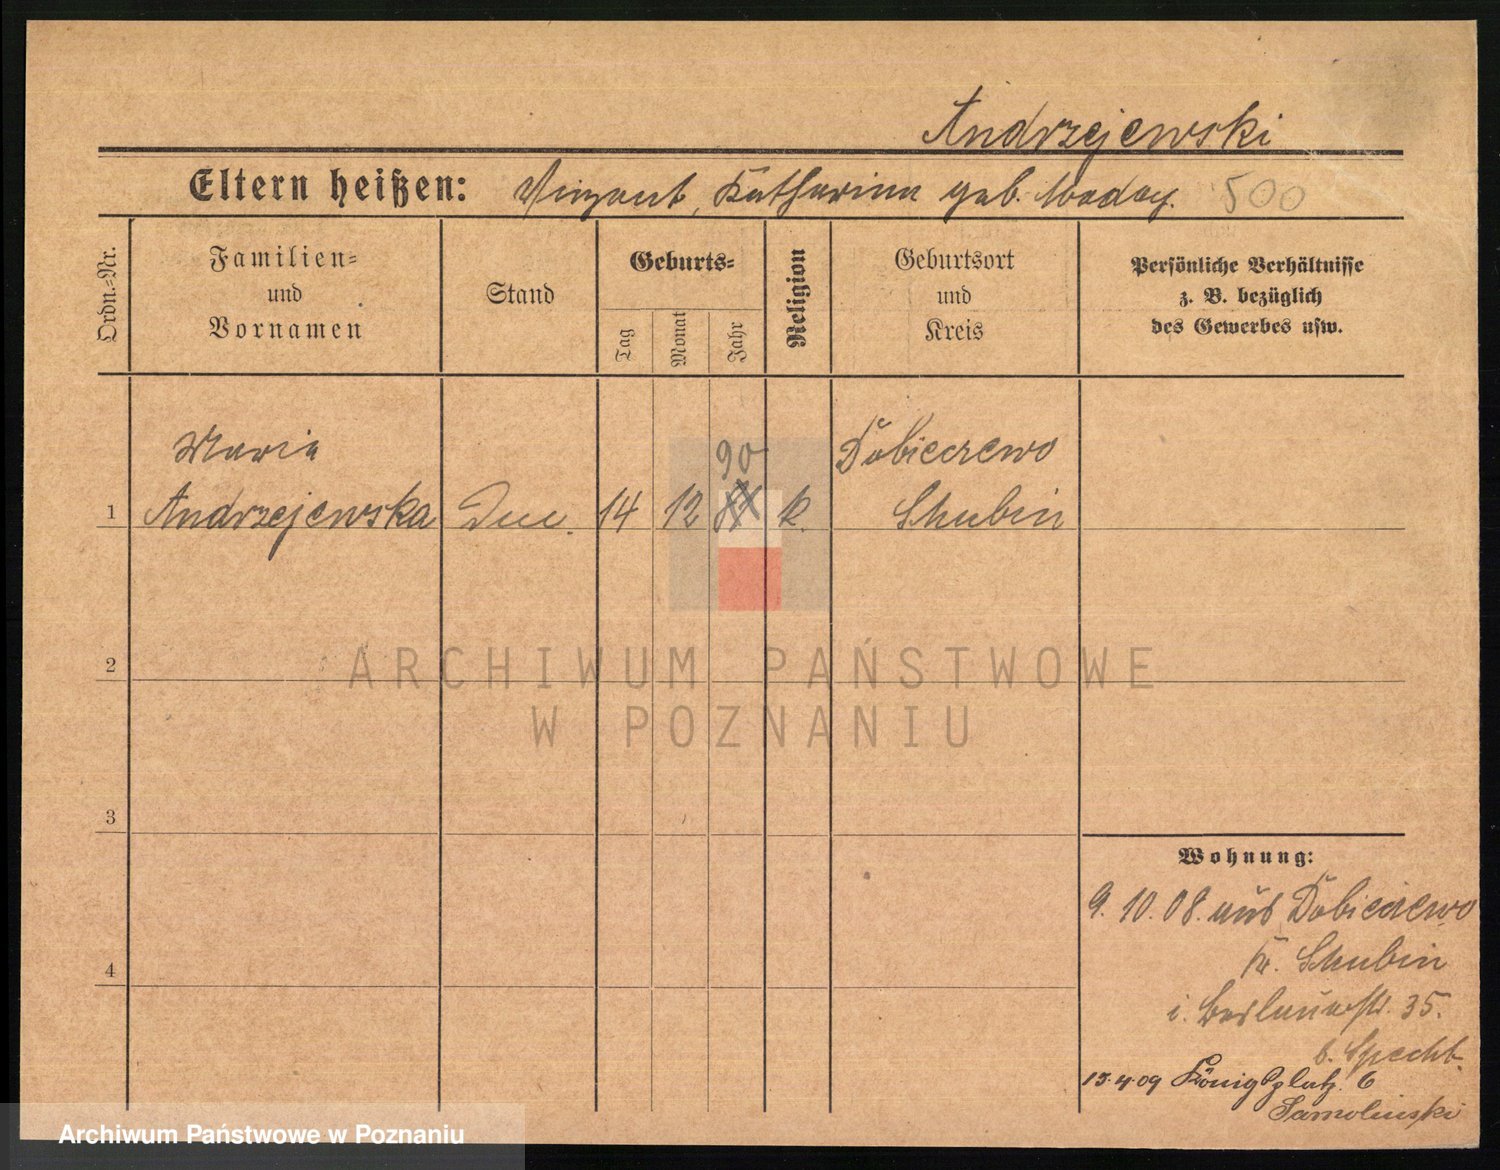 Andrzejewski
Eltern heißen: Vinzent, Katharina geb. 500
Ordn.-Nr.
Familien-
und
Vornamen
Stand
Geburts-
Tag
Monat
Jahr
Religion
Geburtsort
und
Kreis
Persönliche Verhältnisse
z. B. bezüglich
des Gewerbes usw.
Maria 90 Dobieszewo
1 Andrzejewska 14 12 k. Schubin
2
ARCHIWUM PAŃSTWOWE
W POZNANIU
3
4
Wohnung:
9.10.08. aus Dobieszewo
Kr. Schubin
i. 35.
b. Specht
13.4.09 Königsplatz. 6
Samolinski
Archiwum Państwowe w Poznaniu